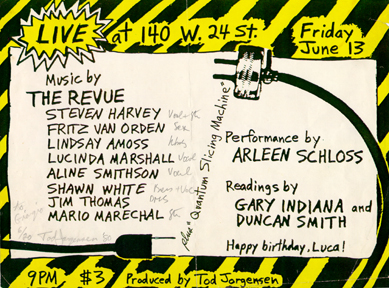 LIVE at 140 W. 24 St.
Friday
June 13
Music by
THE REVUE
STEVEN HARVEY
FRITZ VAN ORDEN Sax
LINDSAY AMOSS
LUCINDA MARSHALL Vocal
ALINE SMITHSON Vocal
SHAWN WHITE
JIM THOMAS
MARIO MARECHAL
plus "Quantum Slicing Machine"
Performance by
ARLEEN SCHLOSS
Readings by
GARY INDIANA and
DUNCAN SMITH
Happy birthday, Luca!
9PM $3 Produced by Tod Jorgensen